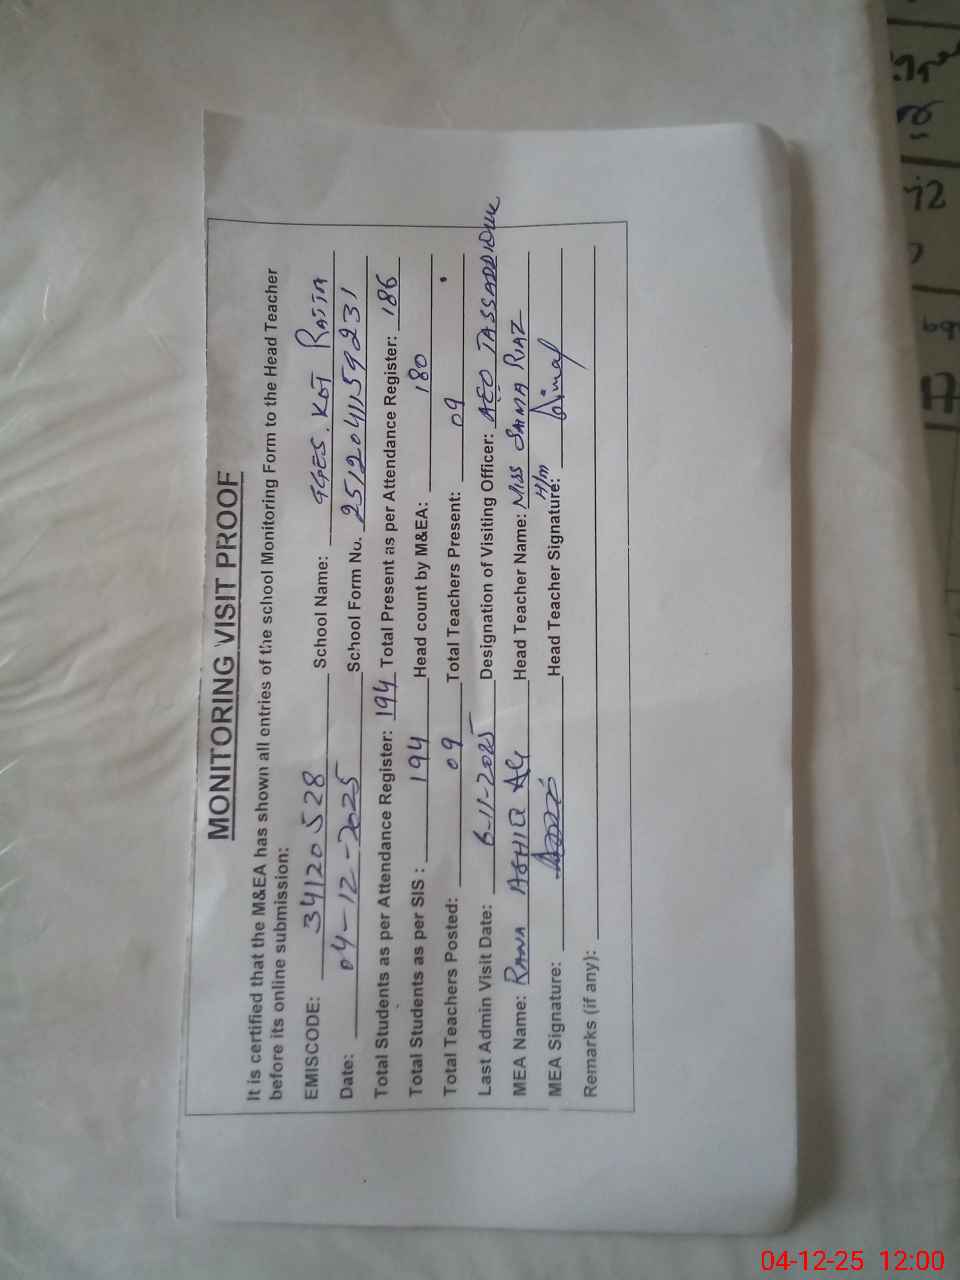 MONITORING VISIT PROOF
It is certified that the M&EA has shown all entries of the school Monitoring Form to the Head Teacher
before its online submission:
EMISCODE: 34120528 School Name: GGES. KOT RAJJA
Date: 04-12-2025 School Form No. 2512041159231
Total Students as per Attendance Register: 194 Total Present as per Attendance Register: 186
Total Students as per SIS : 194 Head count by M&EA: 180
Total Teachers Posted: 09 Total Teachers Present: 09
Last Admin Visit Date: 6-11-2025 Designation of Visiting Officer: AEO TASSADDIQUE
MEA Name: RANA ASHIQ Ali Head Teacher Name: MISS SAMA RIAZ
MEA Signature: Head Teacher Signature: H/m
Remarks (if any):
12
04-12-25 12:00